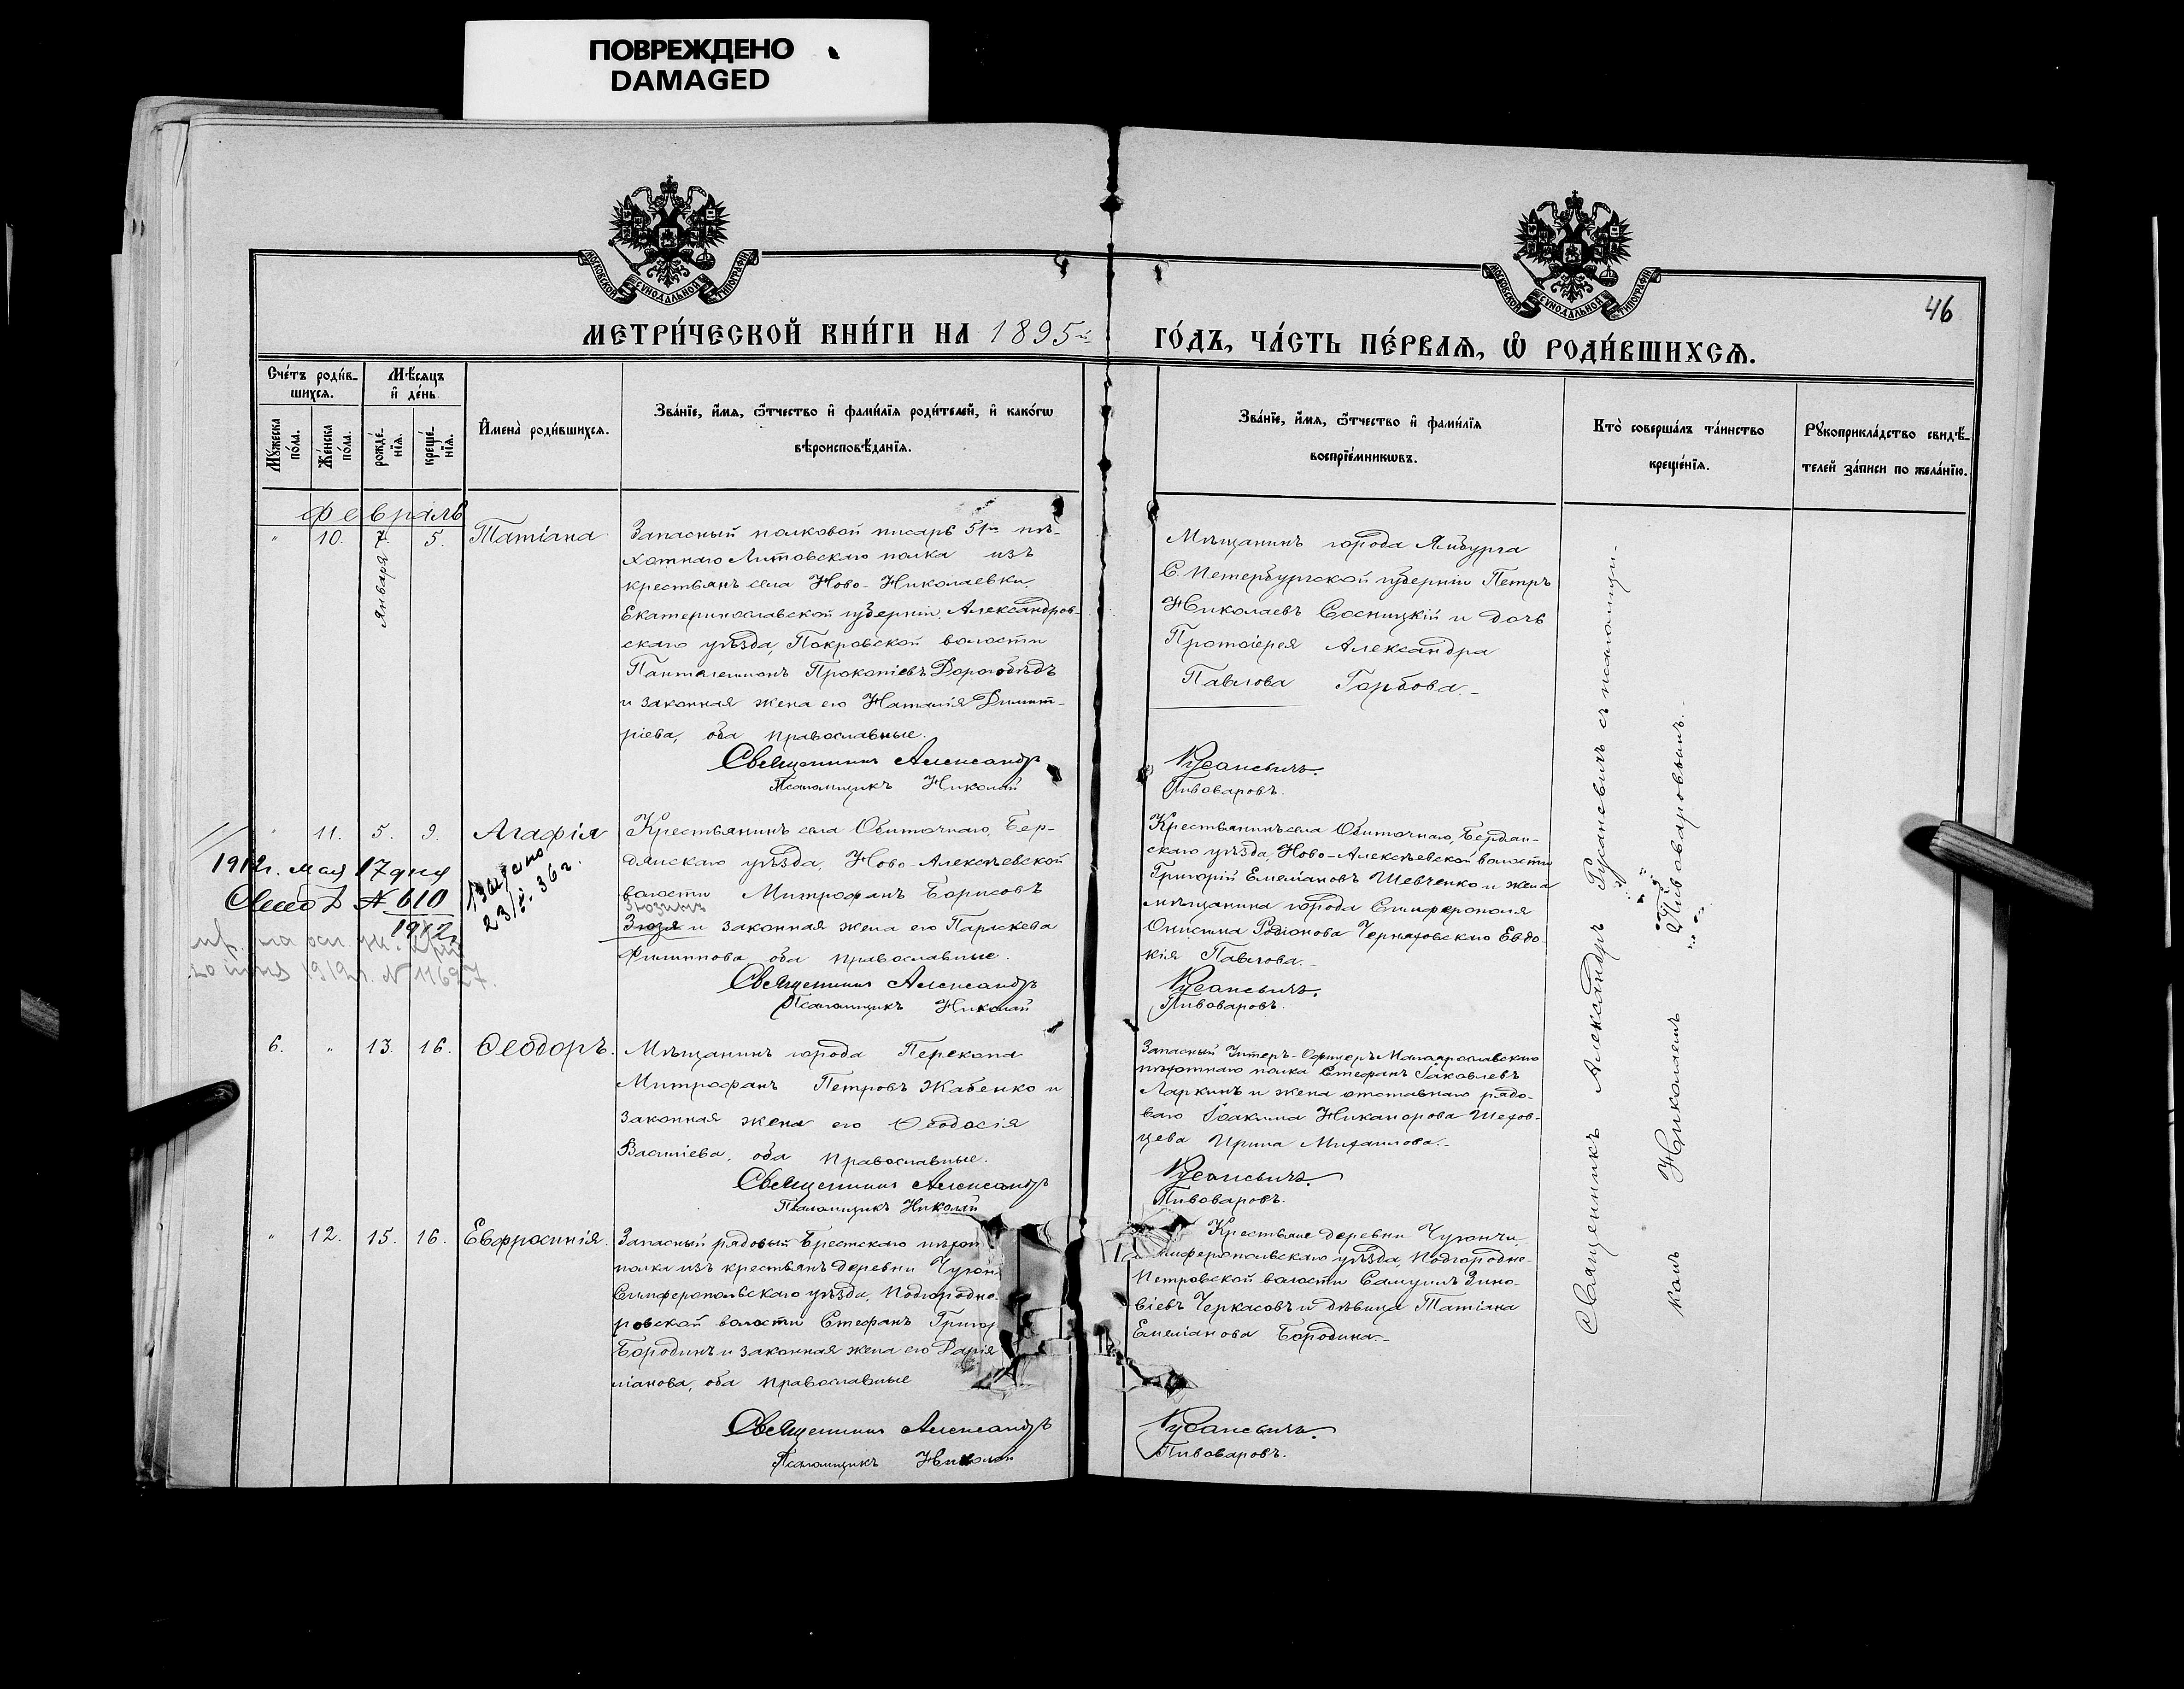 ПОВРЕЖДЕНО
DAMAGED
МОСКОВСКОЙ СѴНОДАЛЬНОЙ ТИПОГРАФІИ
МОСКОВСКОЙ СѴНОДАЛЬНОЙ ТИПОГРАФІИ
46
МЕТРИ́ЧЕСКОЙ КНИ́ГИ НА 1895й
ГО́ДЪ, ЧА́СТЬ ПЕ́РВАѦ, Ѡ҆ РОДИ́ВШИХСѦ.
Сче́тъ роди́в-
шихся.
Мѣ́сяцъ
и҆ де́нь
Мꙋ́жеска
по́ла.
Же́нска
по́ла.
рожде́-
нїя.
креще́-
нїя.
И҆мена̀ роди́вшихся.
Зва́нїе, и҆́мя, ѻ҆́тчество и҆ фами́лїя роди́телей, и҆ како́гѡ
вѣроисповѣ́данїя.
Зва́нїе, и҆́мя, ѻ҆́тчество и҆ фами́лїя
воспрїе́мникѡвъ.
Кто̀ соверша́лъ та́инство
креще́нїя.
Рꙋкоприкла́дство свидѣ́-
телей за́писи по жела́нїю.
Февраль
" 10. 7. 5. Татіана
Января
Запасный полковой писарь 51го пѣ-
хотнаго Литовскаго полка изъ
крестьянъ села Ново-Николаевки,
Екатеринославской губерніи, Александров-
скаго уѣзда, Покровской волости
Пантелеимонъ Прокопіевъ Дорогобѣдъ
и законная жена его Наталія Димит-
ріева, оба православные.
Священникъ Александръ
Псаломщикъ Николай
Мѣщанинъ города Ямбурга
С. Петербургской губерніи Петръ
Николаевъ Сосницкій и дочь
Протоіерея Александра
Павлова Горбова.-
Русаневичъ.
Пивоваровъ.
" 11. 5. 9. Агафія
1912г. мая 17 дня
№ 610
1912
Выдано
36 г.
20 1912г. № 11627.
Крестьянинъ села Обиточнаго, Бер-
дянскаго уѣзда, Ново-Алексѣевской
волости Митрофанъ Борисовъ
Зюзинъ
Зюзя и законная жена его Параскева
Филиппова, оба православные.
Священникъ Александръ
Псаломщикъ Николай
Крестьянинъ села Обиточнаго, Бердян-
скаго уѣзда, Ново-Алексѣевской волости
Григорій Емеліановъ Шевченко и жена
мѣщанина города Симферополя
Онисима Родіонова Черняховскаго Евдо-
кія Павлова.-
Русаневичъ.
Пивоваровъ.
6. " 13. 16. Ѳеодоръ.
Мѣщанинъ города Перекопа
Митрофанъ Петровъ Жабенко и
законная жена его Ѳеодосія
Василіева, оба православные.
Священникъ Александръ
Псаломщикъ Николай
Запасный Унтеръ-Офицеръ Малоярославскаго
пѣхотнаго полка Стефанъ Іаковлевъ
Ларкинъ и жена отставнаго рядо-
ваго Іоакима Никанорова Шехов-
цева Ирина Михаилова.-
Русаневичъ.
Пивоваровъ.
" 12. 15. 16. Евфросинія.
Запасный рядовый Брестскаго пѣхот
полка изъ крестьянъ деревни Чугон
Симферопольскаго уѣзда, Подгородне-
ровской волости Стефанъ Григор
Бородинъ и законная жена его Дарія
ліанова, оба православные
Священникъ Александръ
Псаломщикъ Николай
Крестьяне деревни Чугончи
Симферопольскаго уѣзда, Подгородне-
Петровской волости Самуилъ Зино-
віевъ Черкасовъ и дѣвица Татіана
Емеліанова Бородина.-
Русаневичъ.
Пивоваровъ.
Священникъ Александръ Русаневичъ съ псаломщи-
комъ Николаемъ Пивоваровымъ.-